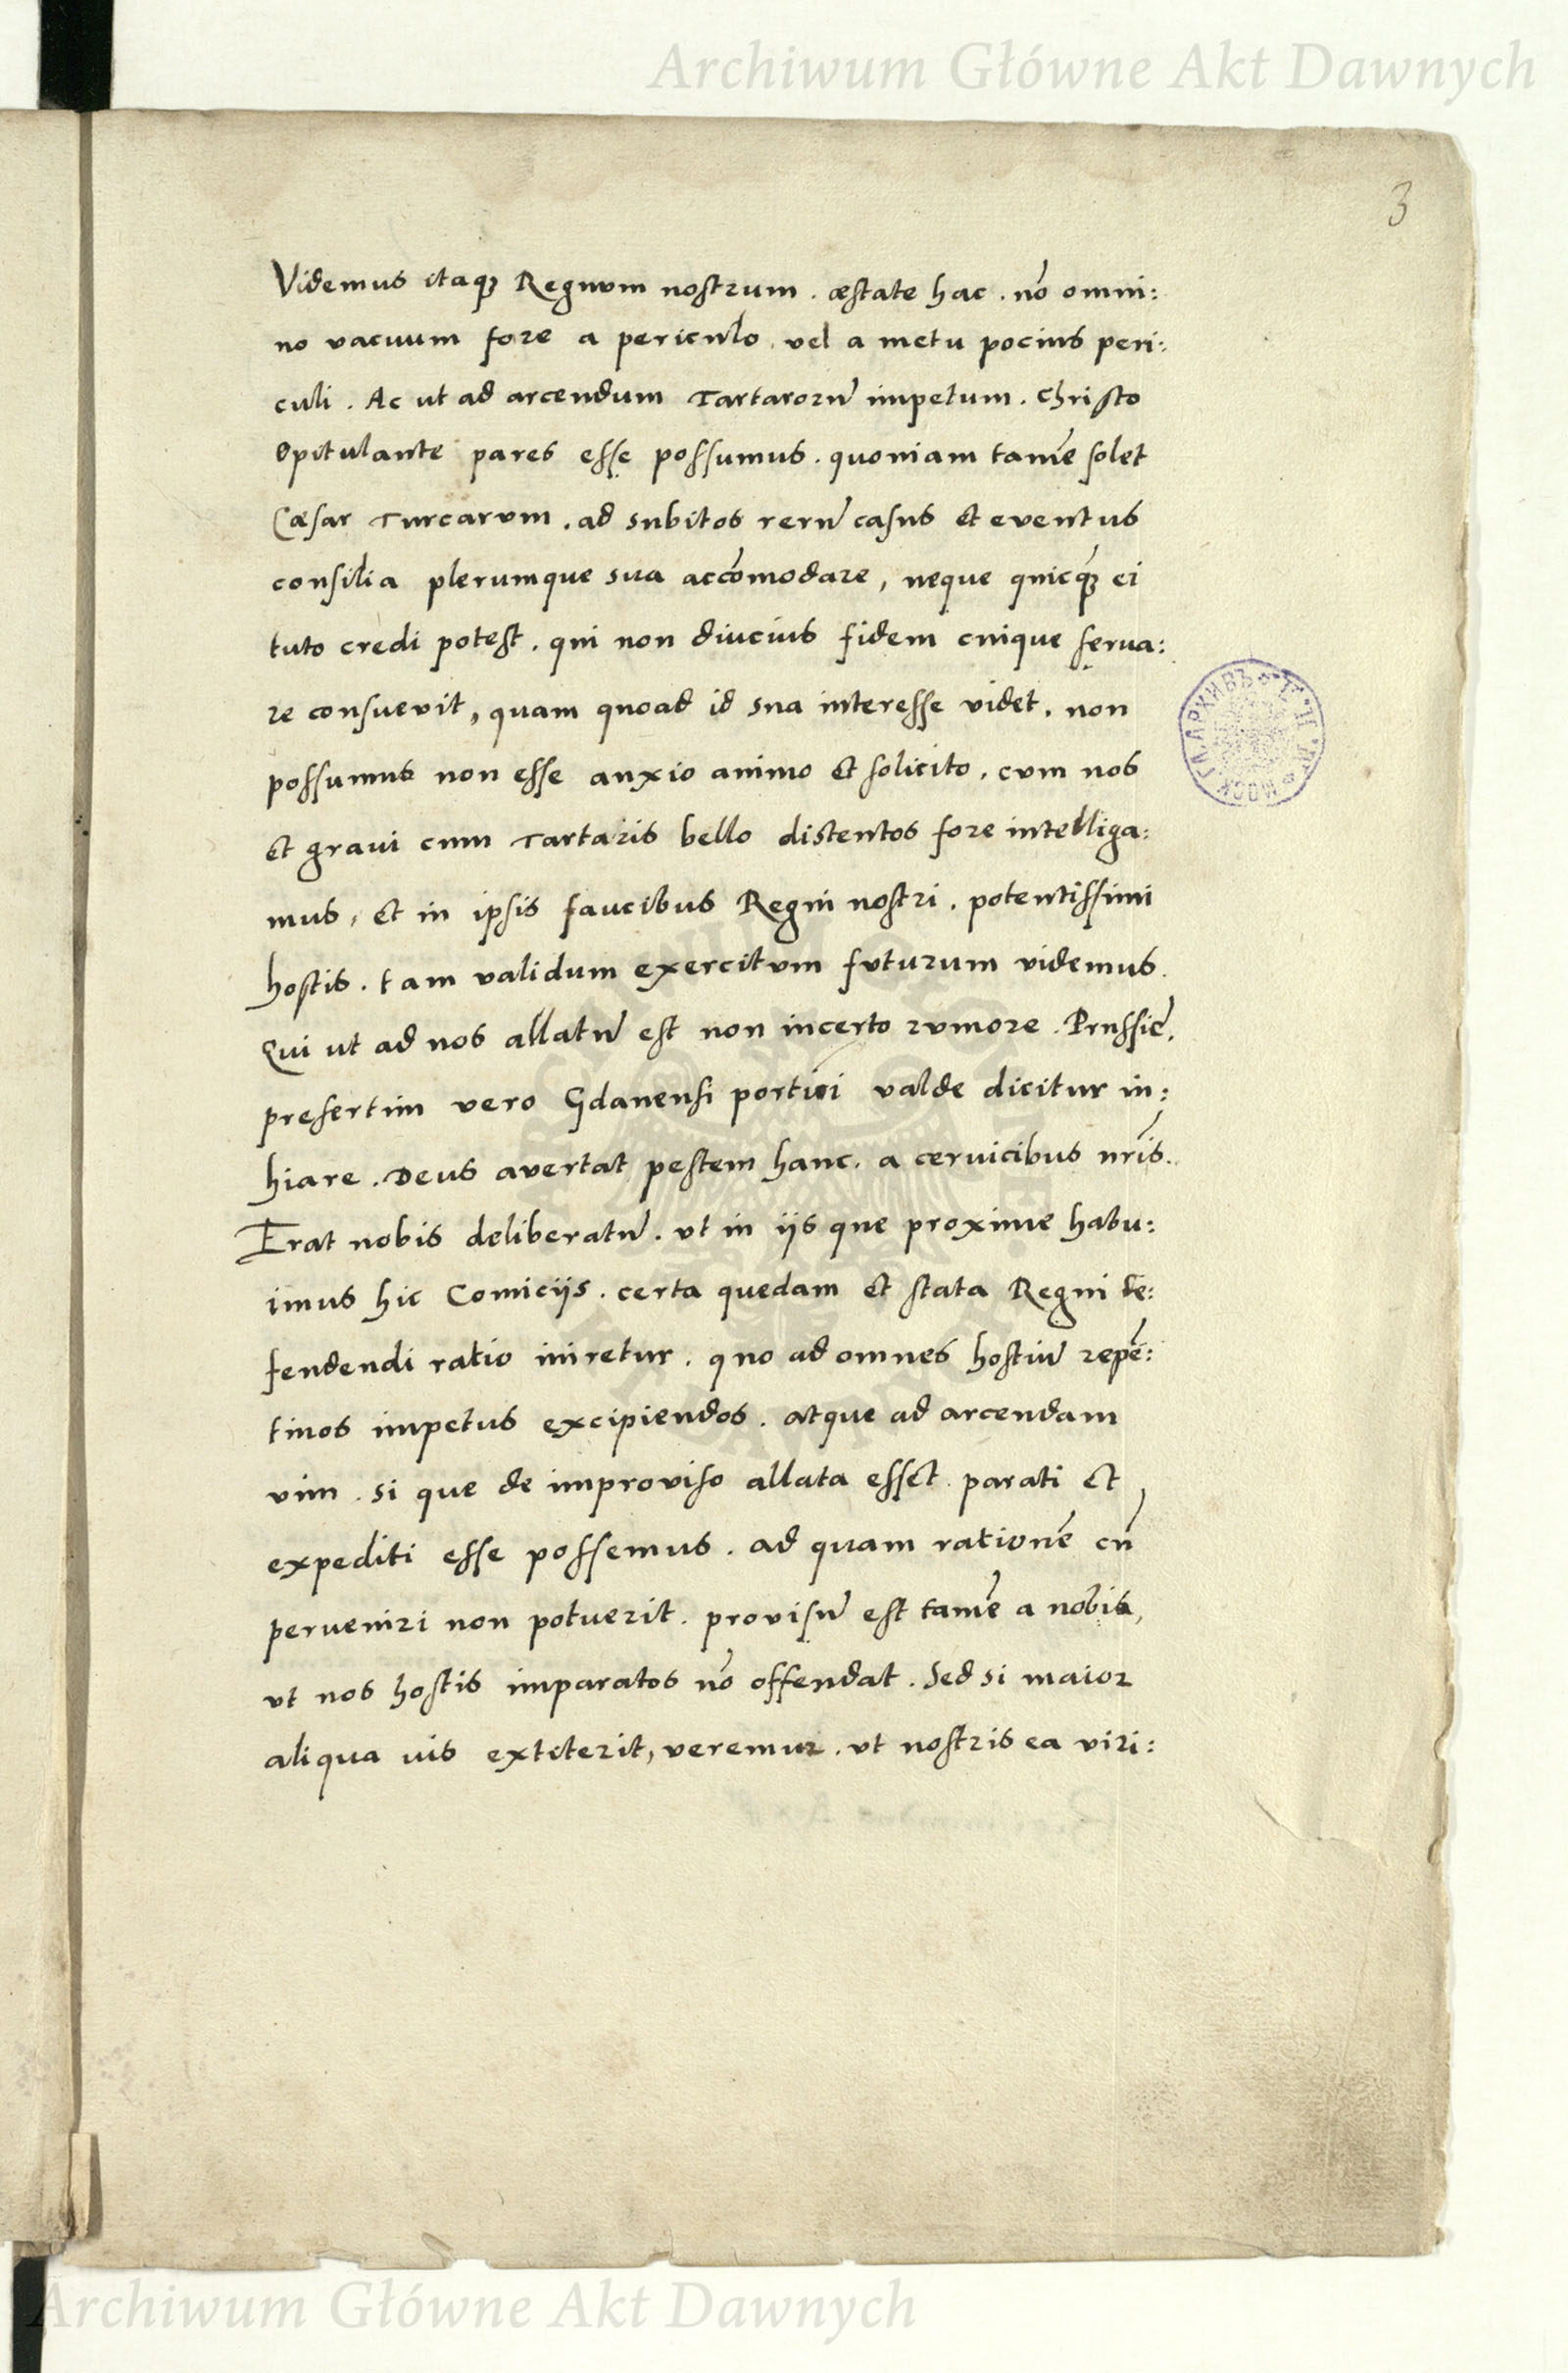 Archiwum Główne Akt Dawnych
3
Videmus itaqꝫ Regnum nostrum . æstate hac . nō omni:
no vacuum fore a periculo . vel a metu pocius peri:
culi . Ac ut ad arcendum Tartarorū impetum . Christo
Opitulante pares esse possumus . quoniam tamē solet
Cæsar Turcarum . ad subitos rerū casus et eventus
consilia plerumque sua accōmodare , neque quicqꝫ ei
tuto credi potest . qui non diucius fidem cuique serua:
re consuevit , quam quoad id sua interesse videt . non
possumus non esse anxio animo et solicito . cum nos
et gravi cum Tartaris bello distentos fore intelliga:
mus , et in ipsis faucibus Regni nostri . potentissimi
hostis . tam validum exercitum futurum videmus .
Qui ut ad nos allatū est non incerto rumore . Prussiē .
presertim vero Gdanensi portui valde dicitur in:
hiare . Deus avertat pestem hanc . a cervicibus nr̄is .
Erat nobis deliberatū . ut in iis que proxime habu:
imus hic Comiciis . certa quedam et stata Regni de:
fendendi ratio iniretur . quo ad omnes hostiū repē:
tinos impetus excipiendos . atque ad arcendam
vim . si que de improviso allata esset . parati et
expediti esse possemus . ad quam rationē cū
perveniri non potuerit . provisū est tamē a nobis ,
ut nos hostis imparatos nō offendat . Sed si maior
aliqua vis extiterit , veremur . ut nostris ea viri:
МОСК. ГЛ. АРХИВЪ
Archiwum Główne Akt Dawnych